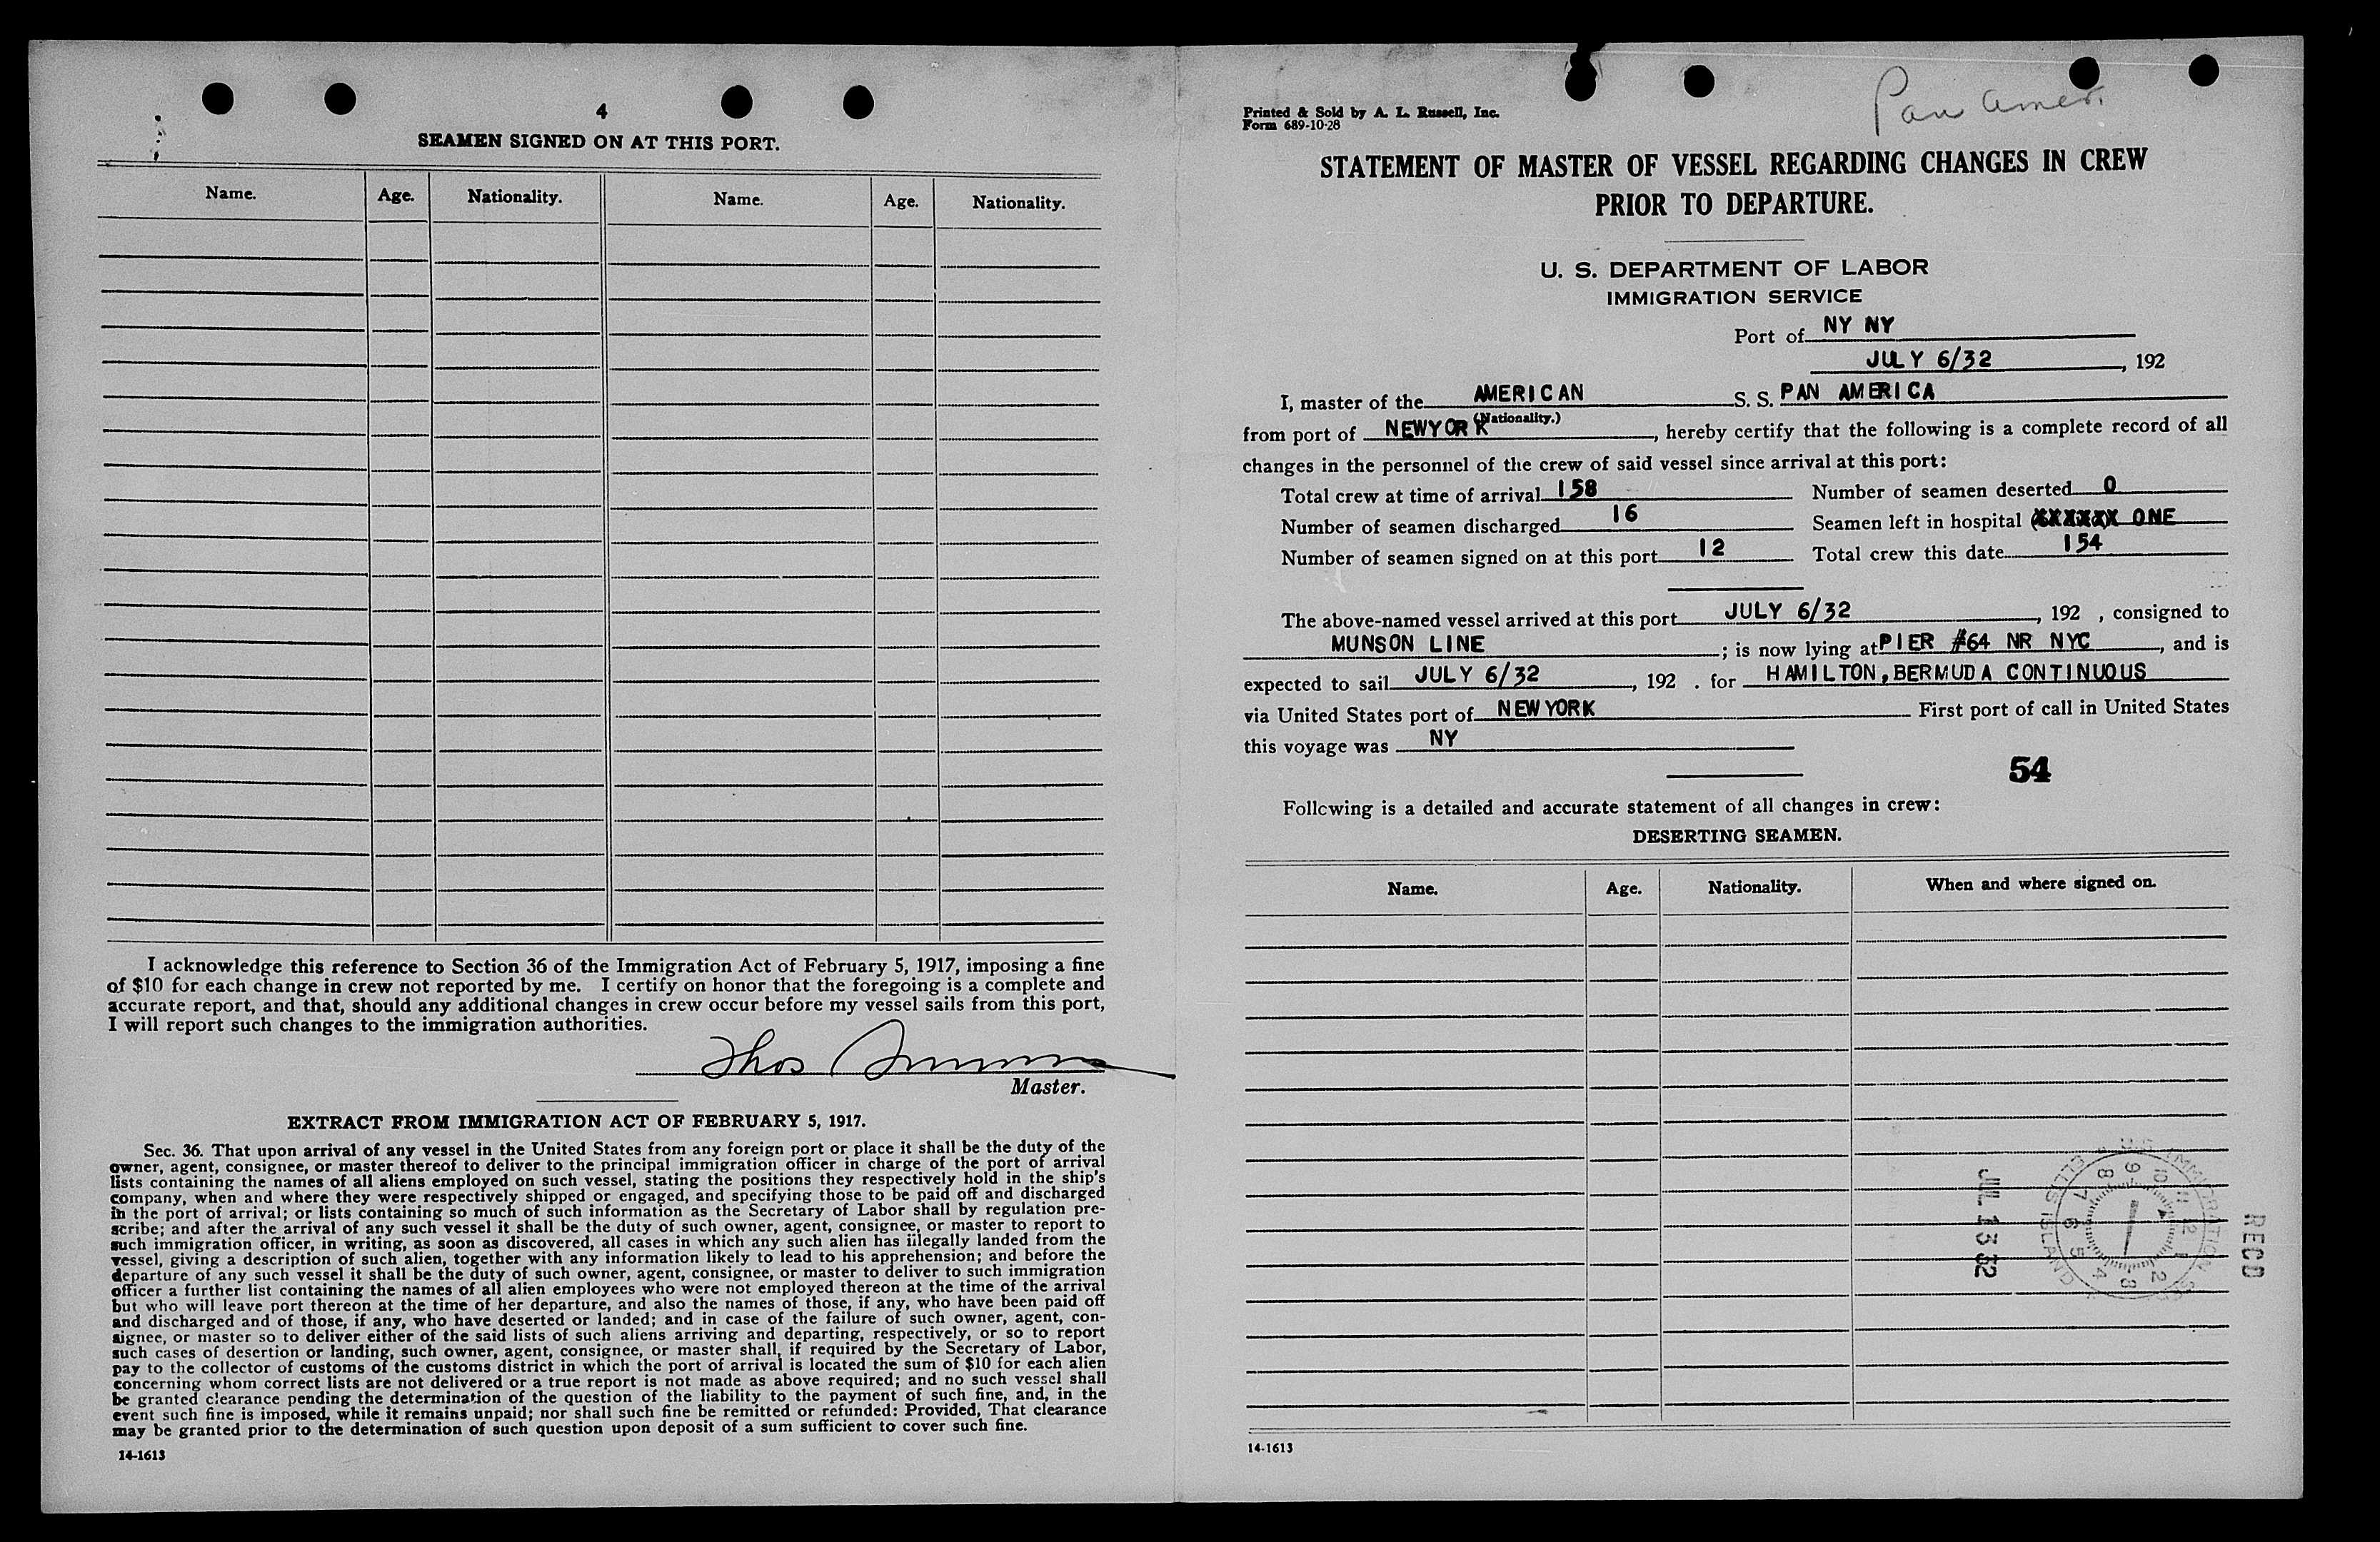 4
SEAMEN SIGNED ON AT THIS PORT.
Name. Age. Nationality. Name. Age. Nationality.
I acknowledge this reference to Section 36 of the Immigration Act of February 5, 1917, imposing a fine
of $10 for each change in crew not reported by me. I certify on honor that the foregoing is a complete and
accurate report, and that, should any additional changes in crew occur before my vessel sails from this port,
I will report such changes to the immigration authorities.
Thos
Master.
EXTRACT FROM IMMIGRATION ACT OF FEBRUARY 5, 1917.
Sec. 36. That upon arrival of any vessel in the United States from any foreign port or place it shall be the duty of the
owner, agent, consignee, or master thereof to deliver to the principal immigration officer in charge of the port of arrival
lists containing the names of all aliens employed on such vessel, stating the positions they respectively hold in the ship's
company, when and where they were respectively shipped or engaged, and specifying those to be paid off and discharged
in the port of arrival; or lists containing so much of such information as the Secretary of Labor shall by regulation pre-
scribe; and after the arrival of any such vessel it shall be the duty of such owner, agent, consignee, or master to report to
such immigration officer, in writing, as soon as discovered, all cases in which any such alien has illegally landed from the
vessel, giving a description of such alien, together with any information likely to lead to his apprehension; and before the
departure of any such vessel it shall be the duty of such owner, agent, consignee, or master to deliver to such immigration
officer a further list containing the names of all alien employees who were not employed thereon at the time of the arrival
but who will leave port thereon at the time of her departure, and also the names of those, if any, who have been paid off
and discharged and of those, if any, who have deserted or landed; and in case of the failure of such owner, agent, con-
signee, or master so to deliver either of the said lists of such aliens arriving and departing, respectively, or so to report
such cases of desertion or landing, such owner, agent, consignee, or master shall, if required by the Secretary of Labor,
pay to the collector of customs of the customs district in which the port of arrival is located the sum of $10 for each alien
concerning whom correct lists are not delivered or a true report is not made as above required; and no such vessel shall
be granted clearance pending the determination of the question of the liability to the payment of such fine, and, in the
event such fine is imposed, while it remains unpaid; nor shall such fine be remitted or refunded: Provided, That clearance
may be granted prior to the determination of such question upon deposit of a sum sufficient to cover such fine.
14-1613
Pan Amer.
Printed & Sold by A. L. Russell, Inc.
Form 689-10-28
STATEMENT OF MASTER OF VESSEL REGARDING CHANGES IN CREW
PRIOR TO DEPARTURE.
U. S. DEPARTMENT OF LABOR
IMMIGRATION SERVICE
Port of NY NY
JULY 6/32, 192
I, master of the AMERICAN S. S. PAN AMERICA
(Nationality.)
from port of NEWYORK, hereby certify that the following is a complete record of all
changes in the personnel of the crew of said vessel since arrival at this port:
Total crew at time of arrival 158 Number of seamen deserted 0
Number of seamen discharged 16 Seamen left in hospital (XXXXXX ONE
Number of seamen signed on at this port 12 Total crew this date 154
The above-named vessel arrived at this port JULY 6/32, 192 , consigned to
MUNSON LINE; is now lying at PIER #64 NR NYC, and is
expected to sail JULY 6/32, 192 . for HAMILTON,BERMUDA CONTINUOUS
via United States port of NEWYORK First port of call in United States
this voyage was NY
54
Following is a detailed and accurate statement of all changes in crew:
DESERTING SEAMEN.
Name. Age. Nationality. When and where signed on.
JUL 13 32
U.S. IMMIGRATION SER ELLIS ISLAND
1 2 3 4 5 6 7 8 9 10 11 12
RECD
14-1613